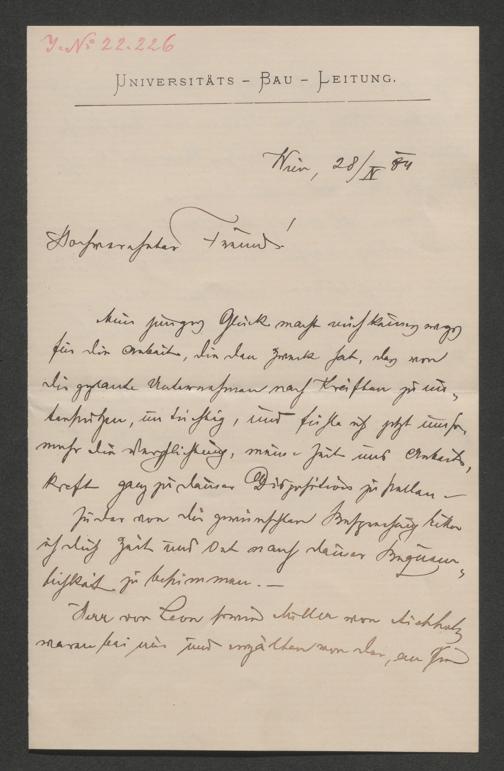 J. No 22.226
Universitäts – Bau – Leitung.
Wien, 28/IV 84
Hochverehrter Freund!
Mein junges Glück macht mich keineswegs
für die Arbeit, die den Zweck hat, das von
dir geplante Unternehmen nach Kräften zu un-
terstützen, untüchtig, und fühle ich jetzt umso
mehr die Verpflichtung, meine Zeit und Arbeits-
kraft ganz zu deiner Disposition zu stellen –
Zu der von dir gewünschten Besprechung bitte
ich dich Zeit und Ort nach deiner Bequem-
lichkeit zu bestimmen. –
Herr von Leon sowie Miller von Aichholz
waren bei mir und erzälten von der, an